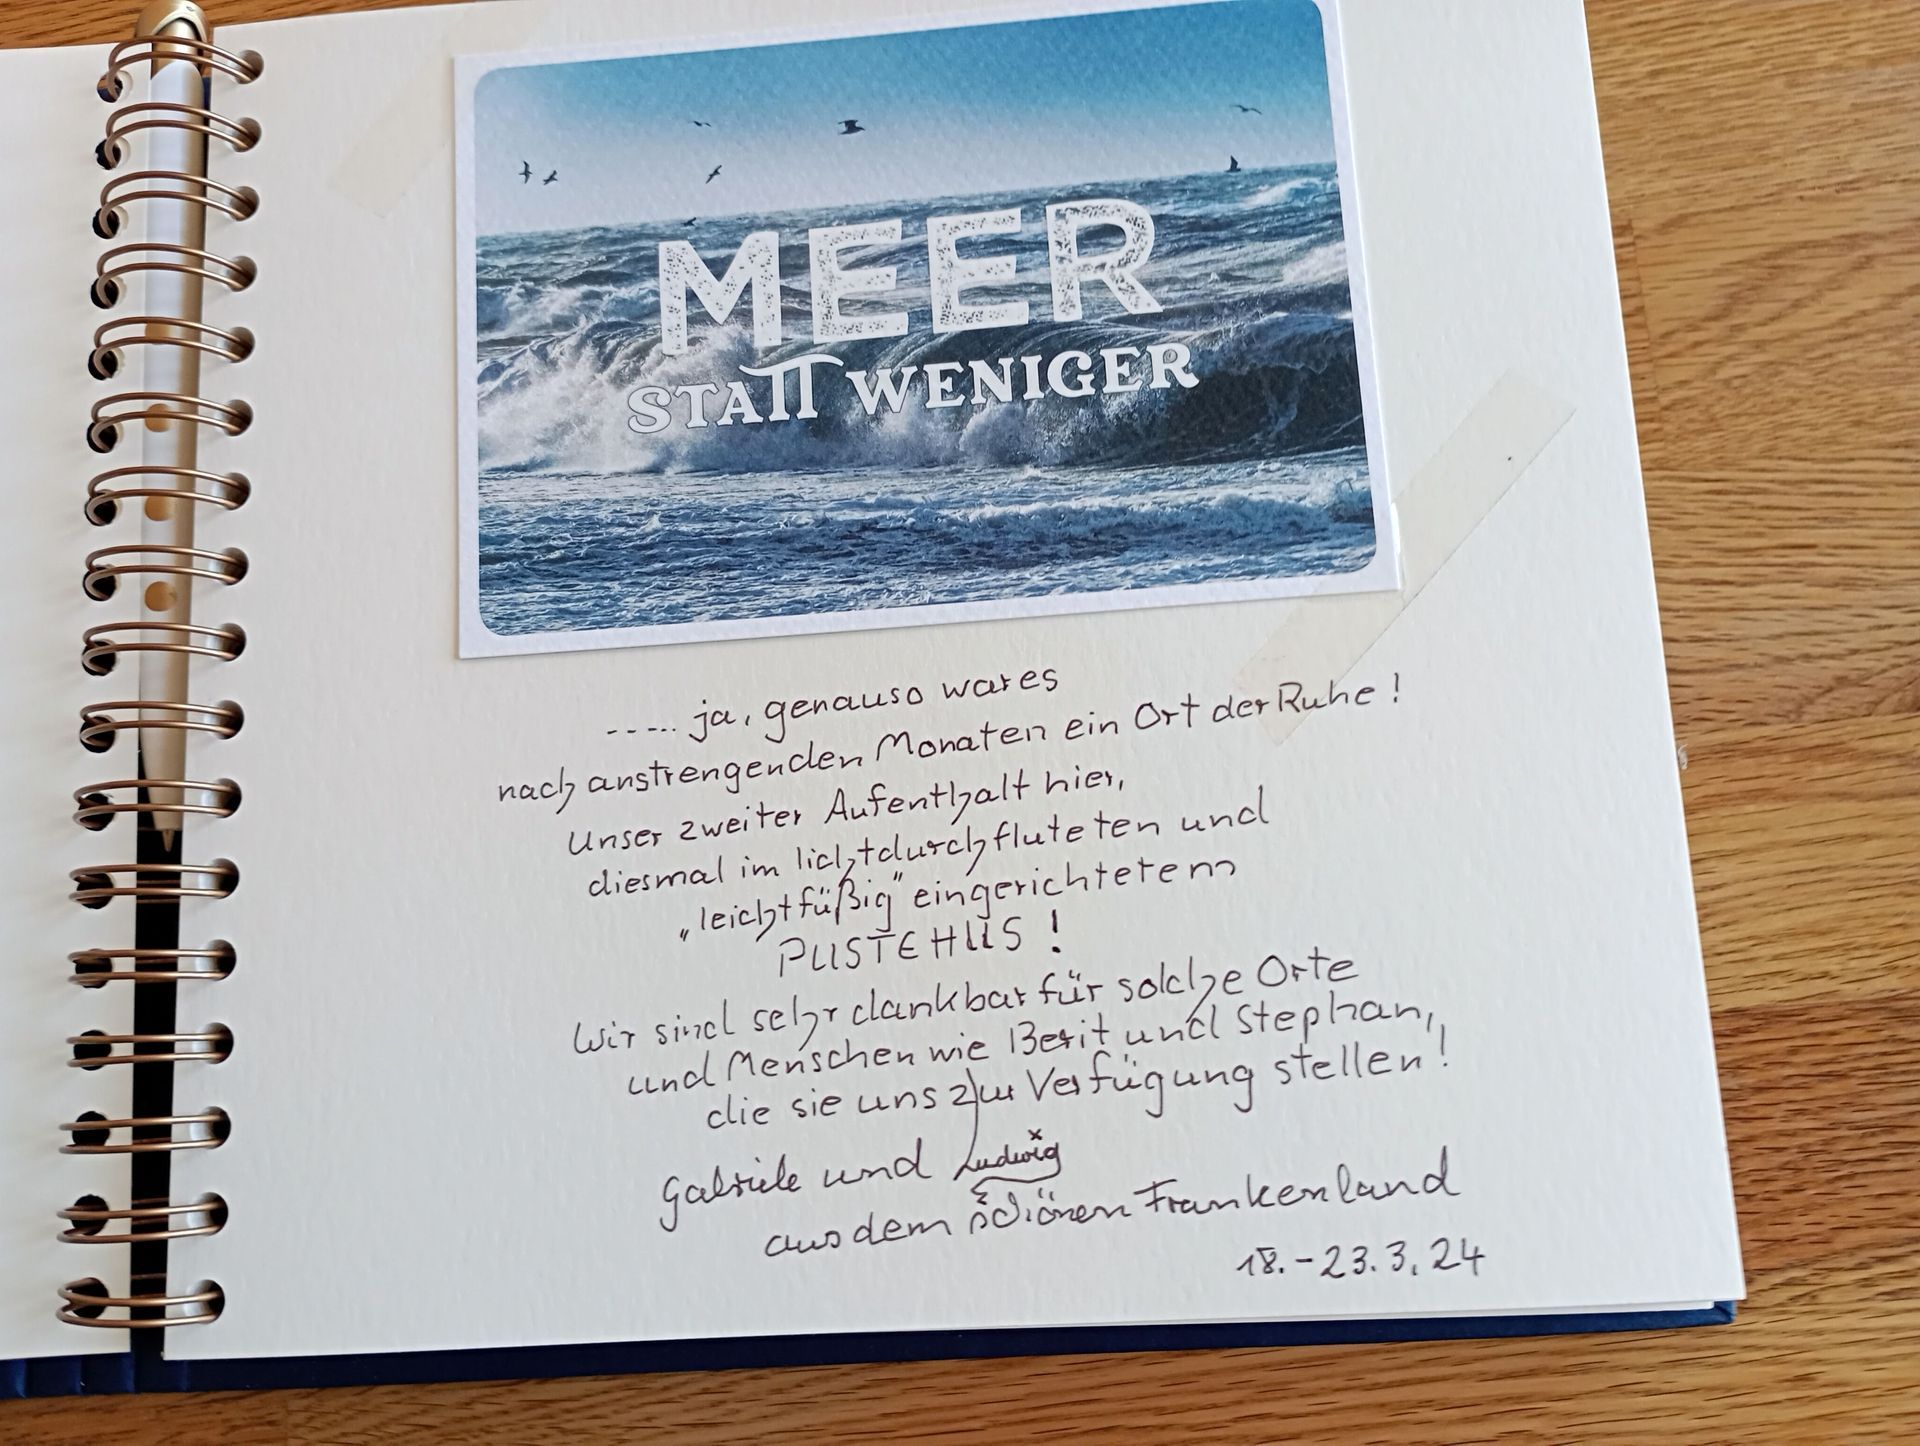 MEER
STATT WENIGER
..... ja, genauso war es
nach anstrengenden Monaten ein Ort der Ruhe!
Unser zweiter Aufenthalt hier,
diesmal im lichtdurchfluteten und
„leichtfüßig" eingerichteten
PUSTEHUS!
Wir sind sehr dankbar für solche Orte
und Menschen wie Berit und Stephan,
die sie uns zur Verfügung stellen!
Gabriele und Ludwig
aus dem schönen Frankenland
18.-23.3.24